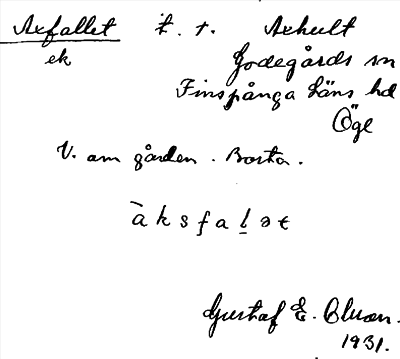 Axfallet t. t. Axhult
ek Godegårds sn
Finspånga läns hd
Ögl
V. om gården. Borta.
ā k s f a l ə t
Gustaf E.
1931.